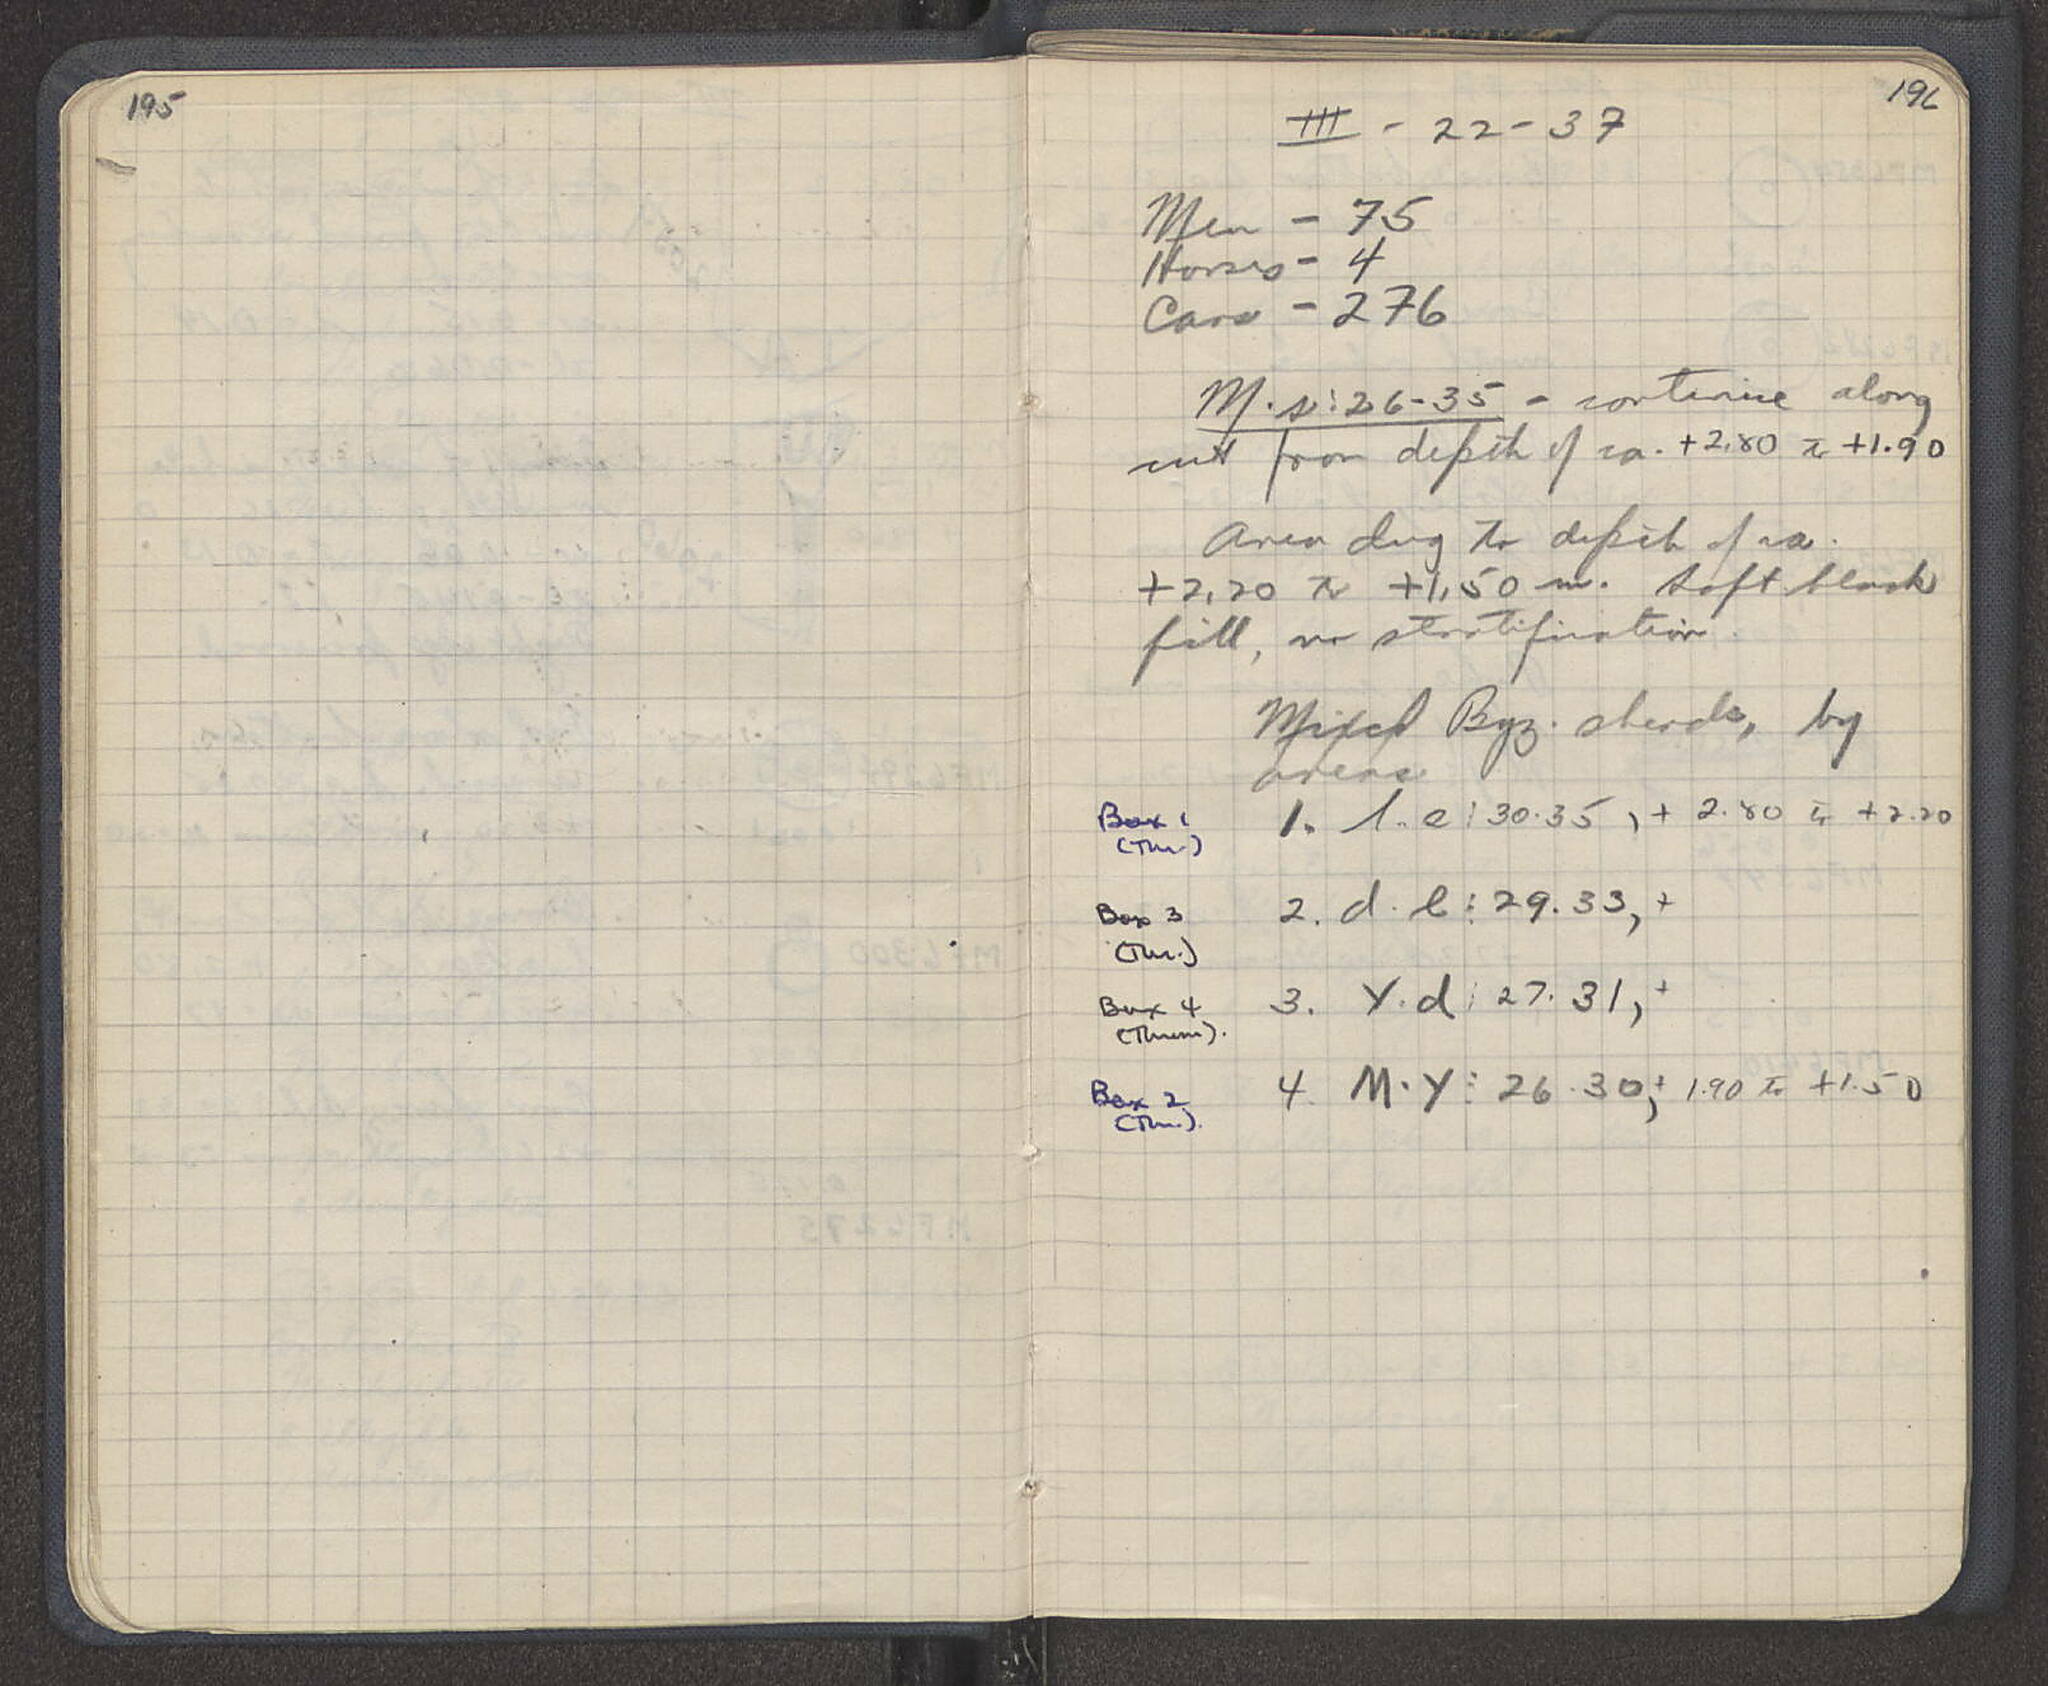 195
196
III - 22 - 37
Men - 75
Horses - 4
Cars - 276
M·s:26-35 - continue along
cut from depth of ca. +2.80 to +1.90
Area dug to depth of ca.
+2.20 to +1.50 m. Soft black
fill, no stratification.
Mixed Byz. sherds, by
areas
Box 1 1. l.e:30.35, + 2.80 to +2.20
(Thr.)
Box 3 2. d.l:29.33, +
(Thr.)
Box 4 3. Y.d:27.31, +
Box 2 4. M.Y:26.30, + 1.90 to +1.50
(Thr.).